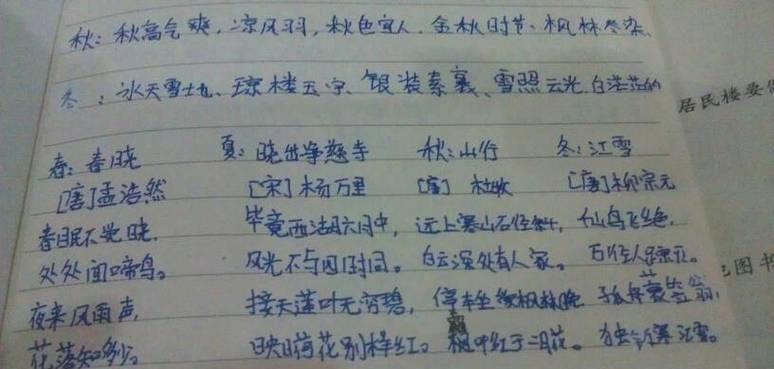 秋：秋高气爽、凉风习习、秋色宜人、金秋时节、枫林尽染、
冬：冰天雪地、琼楼玉宇、银装素裹、雪照云光、白茫茫的
居民楼要
春：春晓 夏：晓出净慈寺 秋：山行 冬：江雪
[唐]孟浩然 [宋]杨万里 [唐]杜牧 [唐]柳宗元
春眠不觉晓， 毕竟西湖六月中， 远上寒山石径斜， 仙鸟飞绝，
处处闻啼鸟。 风光不与四时同。 白云深处有人家。 万径人踪灭。
图书
夜来风雨声， 接天莲叶无穷碧， 停车坐爱枫林晚 孤舟蓑笠翁，
花落知多少。 映日荷花别样红。 霜叶红于二月花。 独钓寒江雪。